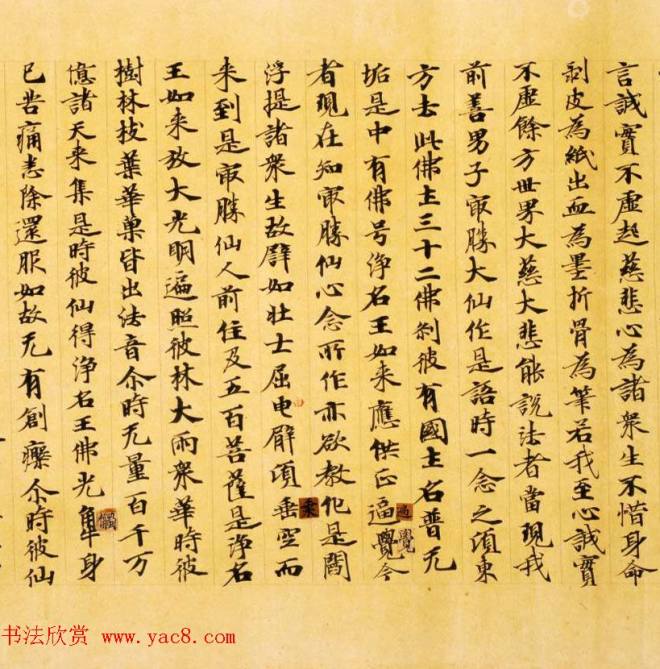 言誠實不虛起慈悲心為諸衆生不惜身命
剥皮為紙出血為墨折骨為筆若我至心誠實
不虛餘方世界大慈大悲能說法者當現我
前善男子㝡勝大仙作是語時一念之頃東
方去此佛土三十二佛刹彼有國土名普无
垢是中有佛号浄名王如来應供正逼覺今
者現在知㝡勝仙心念所作亦欲教化是閻
浮提諸衆生故臂如壮士屈申臂頃垂空而
来到是㝡勝仙人前住及五百菩薩是浄名
王如来放大光明遍照彼林大雨衆華時彼
樹林枝葉華菓皆出法音尒時无量百千万
億諸天来集是時彼仙得浄名王佛光身
已苦痛悉除還服如故无有創癈尒時彼仙
书法欣赏 www.yac8.com